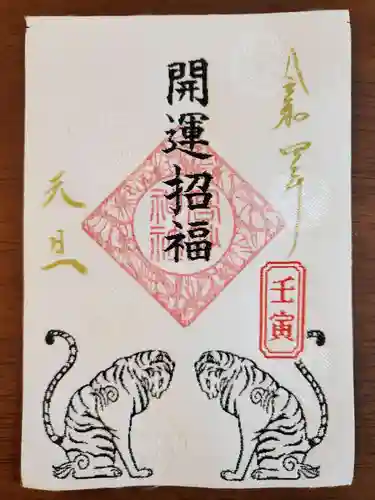 令和四年
開運招福
元旦
壬寅